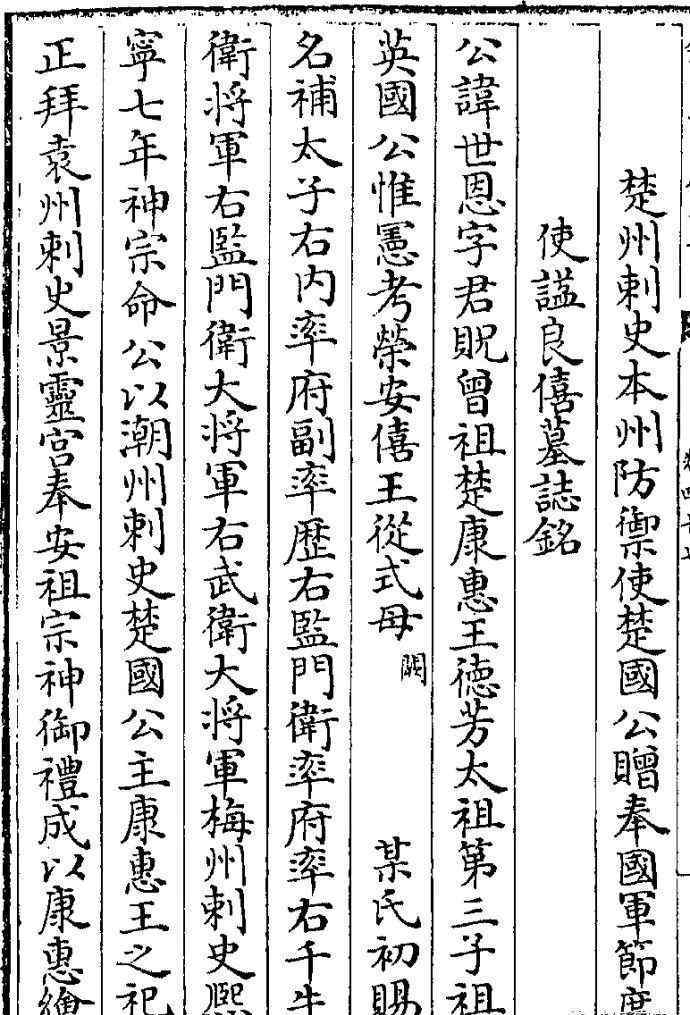 楚州刺史本州防禦使楚國公贈奉國軍節度
使諡良僖墓誌銘
公諱世恩字君貺曾祖楚康惠王德芳太祖第三子祖
英國公惟憲考榮安僖王從式母闕某氏初賜
名補太子右內率府副率歷右監門衛率府率右千牛
衛將軍右監門衛大將軍右武衛大將軍梅州刺史熙
寧七年神宗命公以潮州刺史楚國公主康惠王之祀
正拜袁州刺史景靈宮奉安祖宗神御禮成以康惠繪